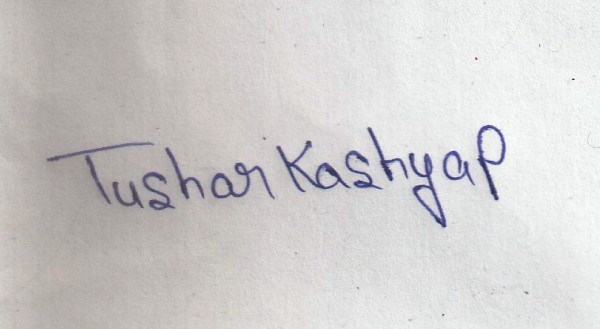 Tushar Kashyap